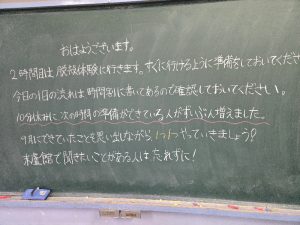 おはようございます。
2時間目は脱穀体験に行きます。すぐに行けるように準備をしておいてくださ
今日の1日の流れは時間割に書いてあるので確認しておいてください。
10分休みに次の時間の準備ができている人がずいぶん増えました。
9月にできていたことも思い出しながら、1つ1つやっていきましょう？
館で聞きたいことがある人は忘れずに！